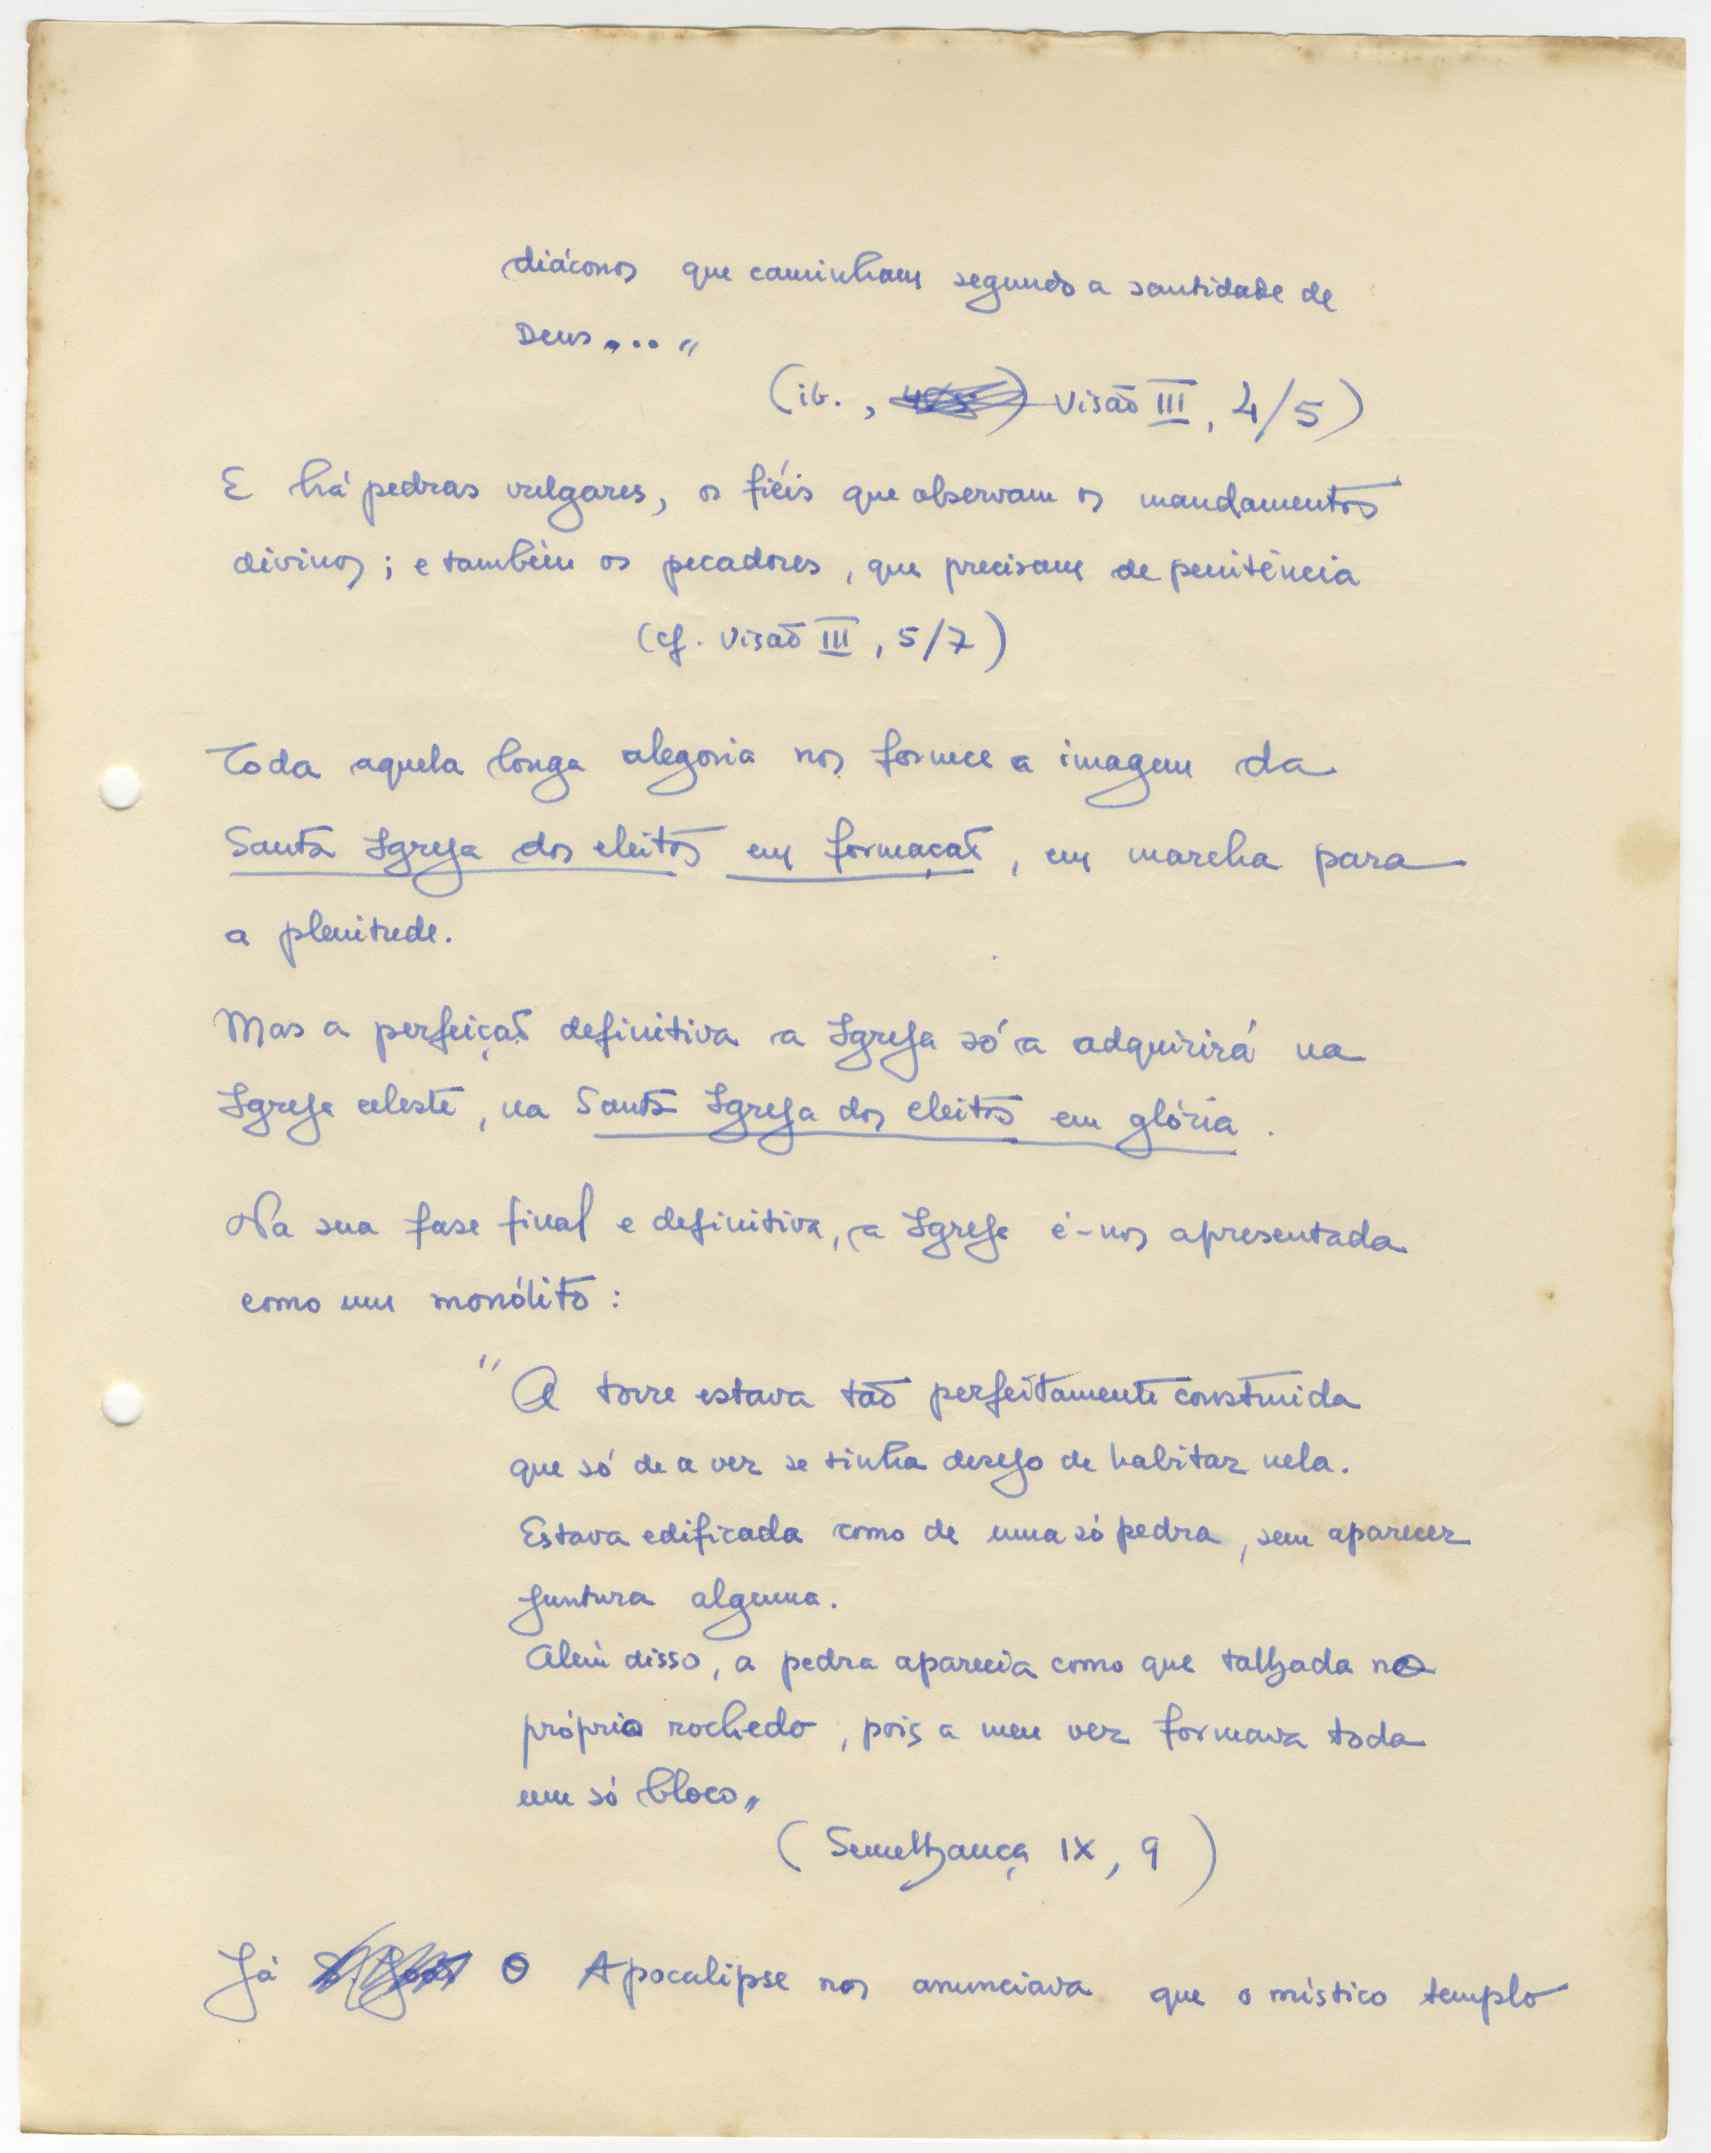 diáconos que caminham segundo a santidade de
Deus...."
(ib., Visão III, 4/5)
E há pedras vulgares, os fiéis que observam os mandamentos
divinos; e também os pecadores, que precisam de penitência
(cf. Visão III, 5/7)
Toda aquela longa alegoria nos fornece a imagem da
Santa Igreja dos eleitos em formação, em marcha para
a plenitude.
Mas a perfeição definitiva a Igreja só a adquirirá na
Igreja celeste, na Santa Igreja dos eleitos em glória.
Na sua fase final e definitiva, a Igreja é-nos apresentada
como um monólito:
"A torre estava tão perfeitamente construida
que só de a ver se tinha desejo de habitar nela.
Estava edificada como de uma só pedra, sem aparecer
juntura alguma.
Além disso, a pedra aparecia como que talhada no
próprio rochedo, pois a meu ver formava toda
um só bloco"
(Semelhança IX, 9)
Já O Apocalipse nos anunciava que o místico templo